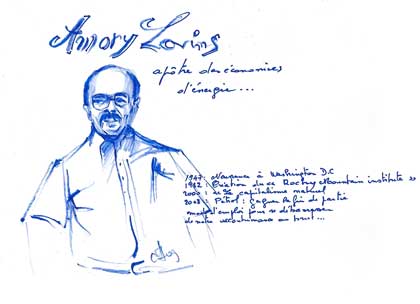 Amory Lovins
apôtre des économies
d'énergie...
1947: Naissance à Washington D.C
1982: Création du Rocky Mountain institute
2000: capitalisme naturel
2008: Pétrol: gagner la fin de partie
mode d'emploi pour se débarrasser
de notre